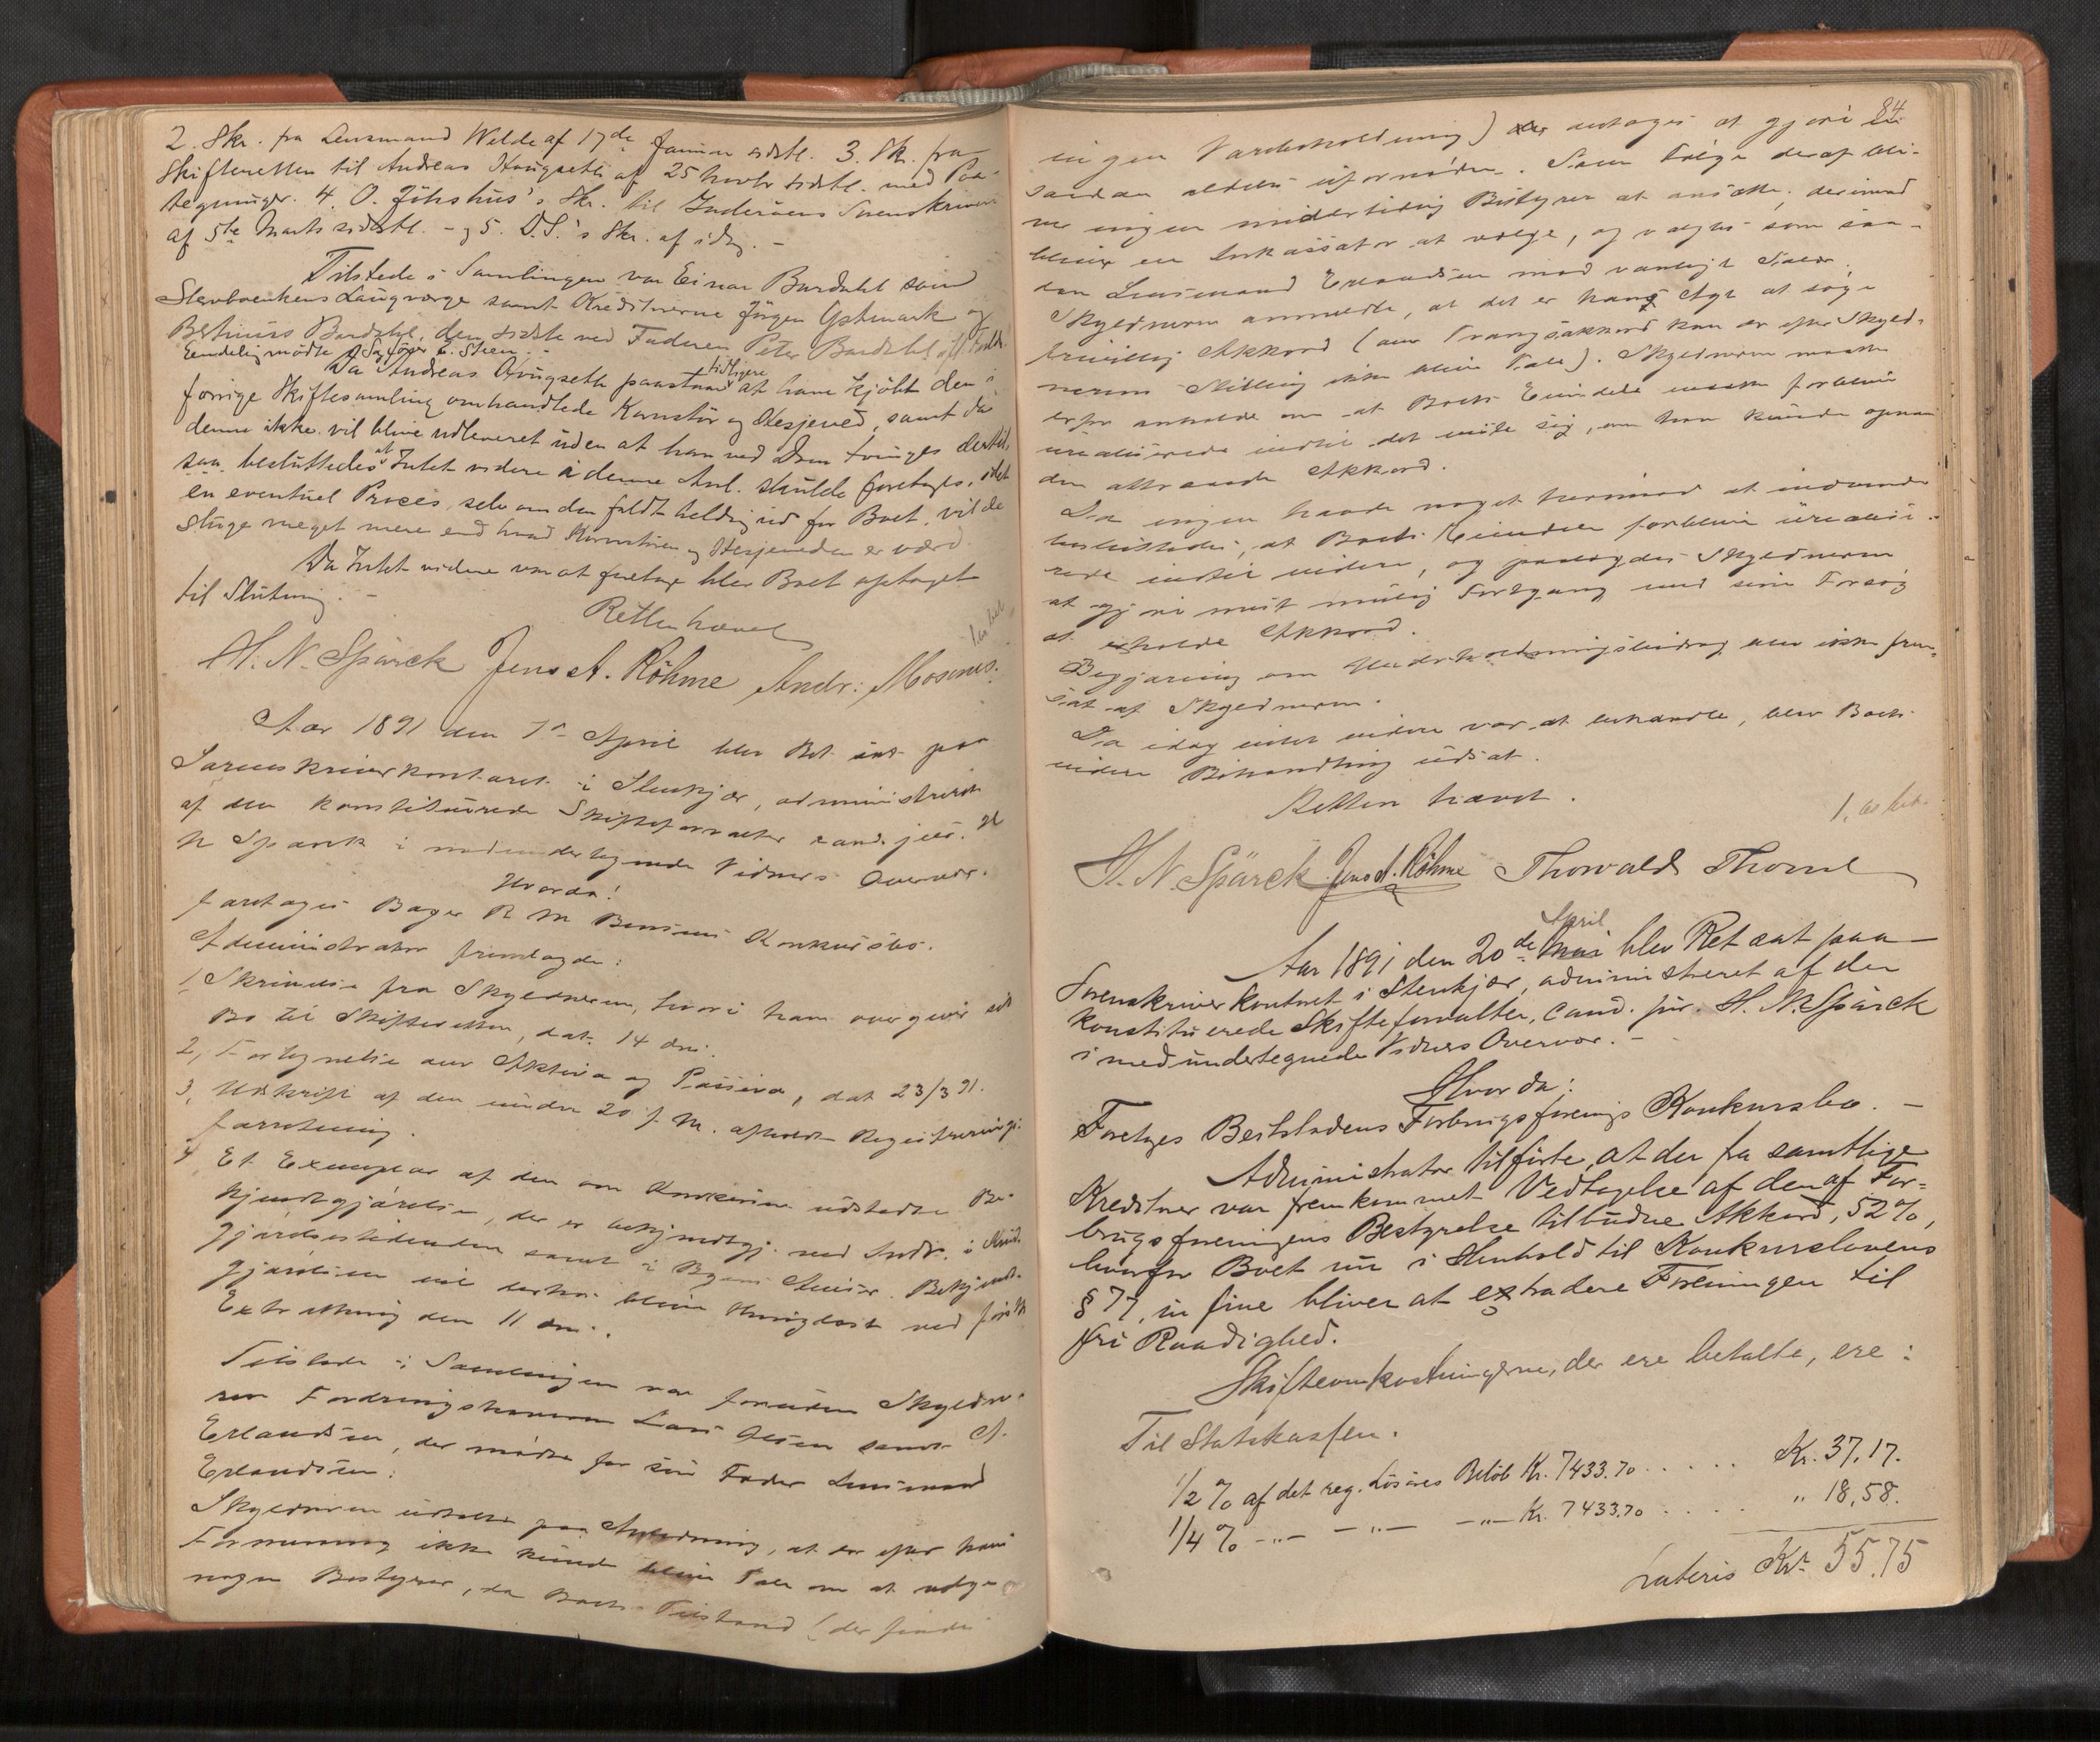 2. Skr. fra Lensmand Welde af 17de Januar sidstl. 3. Skr. fra
Skifteretten til Andreas Haugseth af 25 Novbr sidstl. med Paa-
tegninger. 4. O. Jöhshus's Skr. til Inderöens Sorenskriveri
af 5te Marts sidstl. - og 5. D.S.'s Skr. af idag. -
Tilstede i Samlingen var Einar Bardahl som
Stervboenkens Laugværge samt Kreditorerne Jörgen Ystmark og
Bardahl, den sidste ved Faderen Peter Bardahl
Eendelig mödte Sagförer C. Steen.
Da Andreas Haugseth paastaar tidligere at have kjöbt den i
forrige Skiftesamling omhandlede Kornstör og Hesjeved, samt da
denne ikke vil blive udleveret uden at han ved Dom tvinges dertil,
saa besluttedes at Intet videre i denne Anl. skulde foretages, idet
en eventuel Proces, selv om den faldt heldig ud for Boet, vilde
sluge meget mere end hvad Kornstören og Hesjeveden er værd.
Da Intet videre var at foretage blev Boet optaget
til Slutning. -
Retten hævet
H. N. Spärck Jens A. Röhme Andr: Mosenes.
Aar 1891 den 7de April blev Ret sat paa
Sorenskriverkontoret i Stenkjær, administreret
af den konstituerede Skifteforvalter cand. jur. H
N Spärck i medundertegnede Vidners Overvær.
Hvorda!
foretoges Bager R M Bensens Konkursbo.
Administrator fremlagde:
1, Skrivelse fra Skyldneren, hvori han overgiver sit
Bo til Skifteretten, dat. 14 dns.
2, Fortegnelse over Aktiva og Passiva, dat 23/3 91.
3, Udskrift af den under 20 f. M. afholdte Registrerings-
forretning.
4 Et Exemplar af den om Konkursen udstedte Be-
kjendtgjörelse, der er bekjendtgj. ved Indr. i Kund-
gjörelsestidenden samt i Byens Aviser. Bekjendt-
gjörelsen vil derhos blive thinglæst ved förste
Extrathing den 11 dns.
Tilstede i Samlingen var foruden Skyldne-
ren Fordringshaveren Lars Olsen samt A.
Erlandsen, der mödte for sin Fader Lensmand
Erlandsen.
Skyldneren udtalte paa Anledning, at der efter hans
Formening ikke kunde blive Tale om at vælge
nogen Bestyrer, da Boets Tilstand (der findes
84
ingen Varebeholdning) antages at gjöre en
saadan aldeles ufornöden. Som Fölge deraf bli-
ver ingen midlertidig Bestyrer at ansætte; derimod
bliver en Inkassator at vælge, og valgtes som saa-
dan Lensmand Erlandsen mod vanligt Salær.
Skyldneren anmeldte, at det er hans Agt at söge
frivillig Akkord (om Tvangsakkord kan der efter Skyld-
nerens Stilling ikke blive Tale). Skyldneren maatte
derfor anholde om at Boets Eiendele maatte forblive
urealiserede indtil det viste sig, om han kunde opnaa
den attraaede Akkord.
Da ingen havde noget herimod at indvende
besluttedes, at Boets Eiendele forblive urealise-
rede indtil videre, og paalagdes Skyldneren
at gjöre mest mulig Fortgang med sine Forsög
at erholde Akkord.
Begjæring om Underholdningsbidrag blev ikke frem-
sat af Skyldneren.
Da idag intet videre var at behandle, blev Boets
videre Behandling udsat.
Retten hævet.
H. N. Spärck Jens A. Röhme Thorvald Thorsel
Aar 1891 den 20de April blev Ret sat paa
Sorenskriverkontoret i Stenkjær, administreret af den
konstituerede Skifteforvalter, cand. jur. H. N. Spärck
i medundertegnede Vidners Overvær. -
Hvorda:
Foretoges Beitstadens Forbrugsforenings Konkursbo. -
Administrator tilförte, at der fra samtlige
Kreditorer var fremkommet Vedtagelse af den af For-
brugsforeningens Bestyrelse tilbudne Akkord, 52%,
hvorfor Boet nu i Henhold til Konkurslovens
§ 77, in fine bliver at extradere Foreningen til
fri Raadighed.
Skifteomkostningerne, der ere betalte, ere:
Til Statskassen.
1/2 % af det reg. Lösöres Belöb Kr. 7433.70 ..... Kr. 37.17.
1/4 % -"- -"- -"- Kr. 7433.70 ..... " 18,58.
Lateris Kr. 55.75